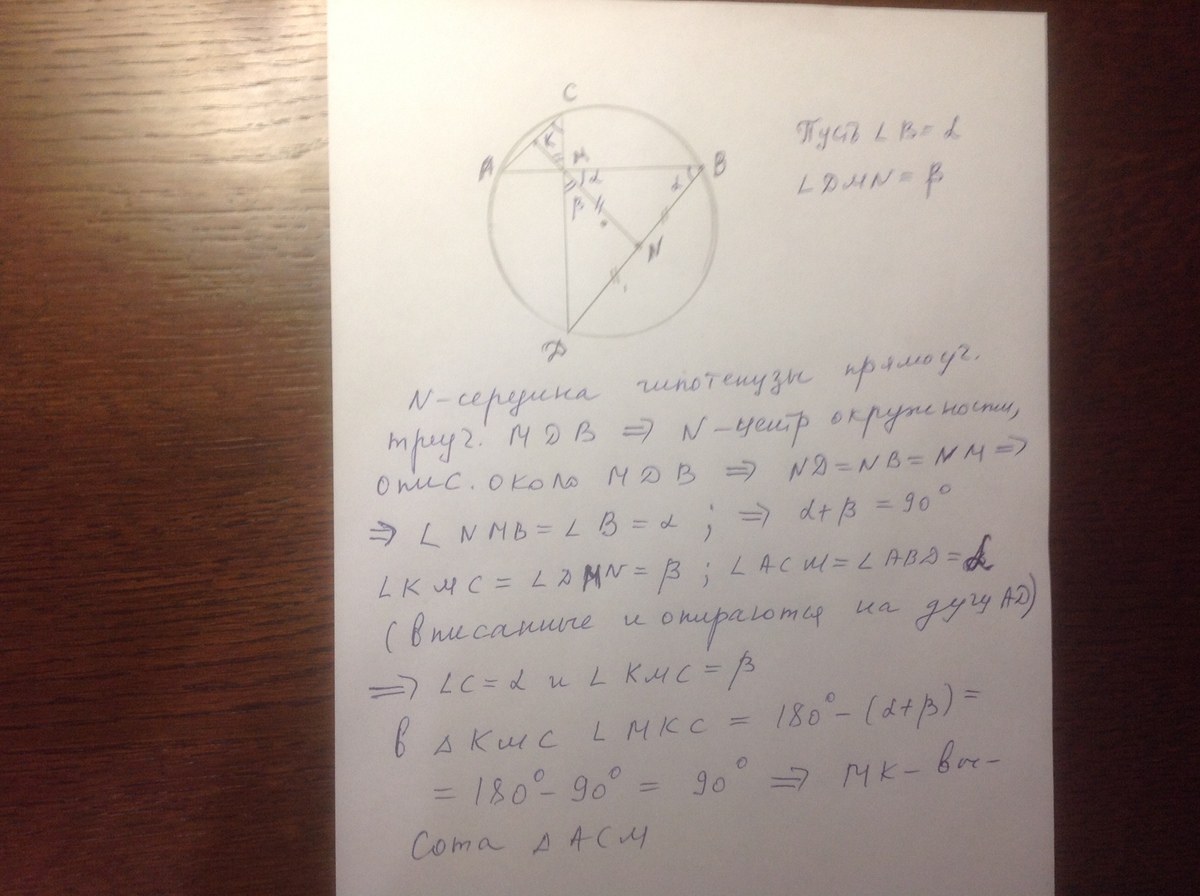 C
K
A
M
B
α
α
β
N
D
Пусть ∠ B = α
∠ DMN = β
N - середина гипотенузы прямоуг.
треуг. MDB ⇒ N - центр окружности,
опис. около MDB ⇒ ND = NB = NM ⇒
⇒ ∠ NMB = ∠ B = α ; ⇒ α + β = 90°
∠ KMC = ∠ DMN = β ; ∠ ACM = ∠ ABD = α
(вписанные и опираются на дугу AD)
⇒ ∠C = α и ∠ KMC = β
В △ KMC ∠ MKC = 180° - (α + β) =
= 180° - 90° = 90° ⇒ MK - вы-
сота △ ACM